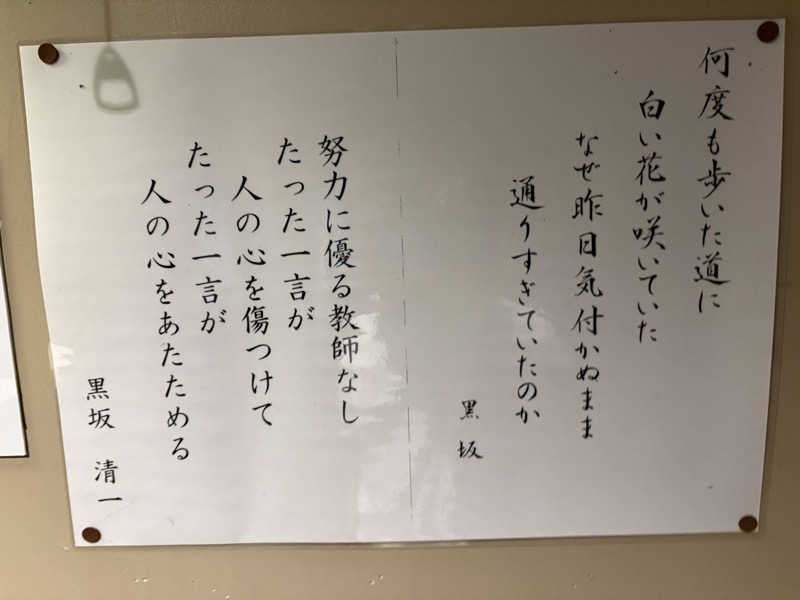 何度も歩いた道に
白い花が咲いていた
なぜ昨日気付かぬまま
通りすぎていたのか
黒坂
努力に優る教師なし
たった一言が
人の心を傷つけて
たった一言が
人の心をあたためる
黒坂 清一